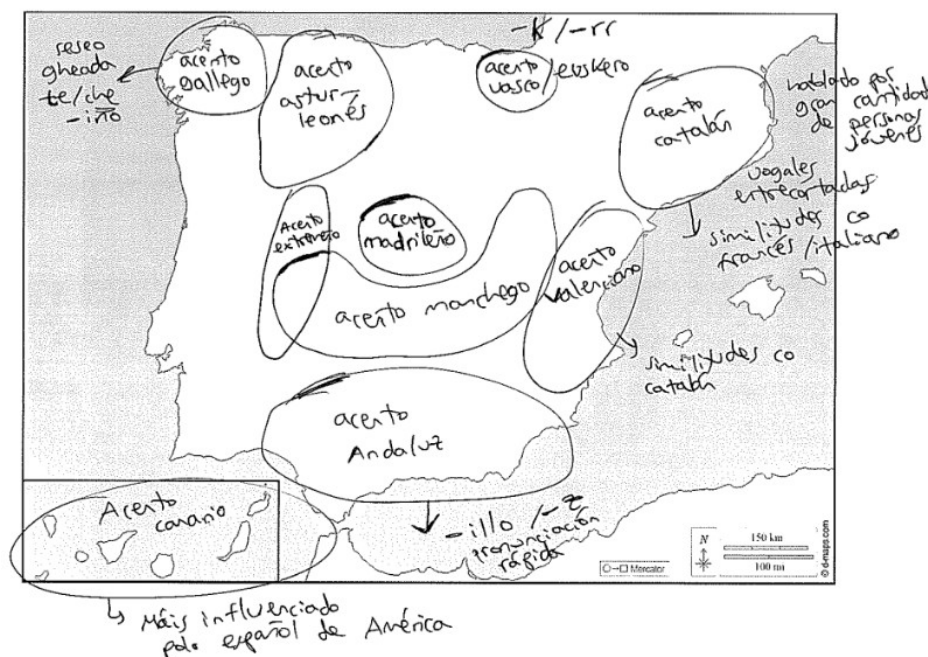 -k/-rr
seseo
gheada
te/che
-iño
acento
gallego
acento
astur-
leonés
acento
vasco/euskero
acento
catalán
hablado por
gran cantidad
de personas
jóvenes
vogales
entrecortadas
similitudes co
francés/italiano
Acento
extremeño
acento
madrileño
acento manchego
acento
valenciano
similitudes co
catalán
acento
Andaluz
-illo/-z
pronunciación
rápida
Acento
canario
Máis influenciado
polo español de América
Mercator
N
150 km
100 mi
© d-maps.com